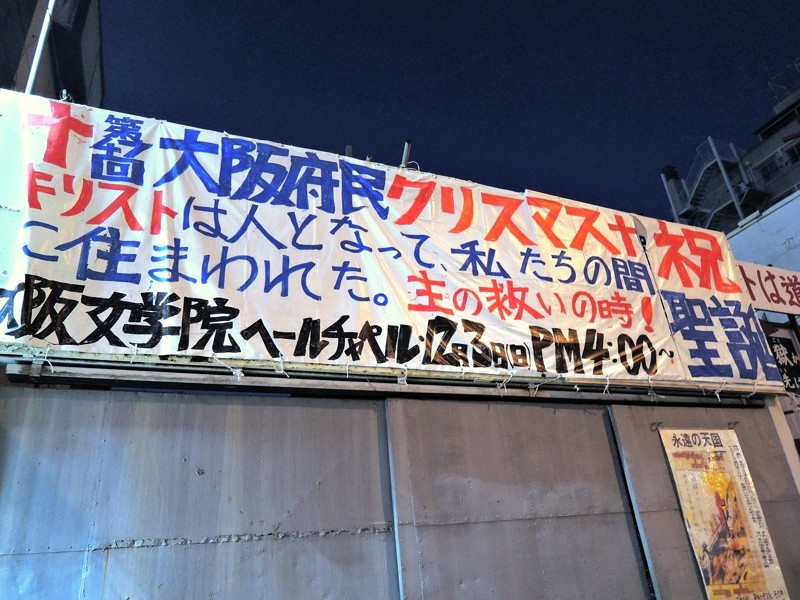 十 第4回 大阪府民クリスマス十
キリストは人となって、私たちの間
に住まわれた。主の救いの時!
大阪文学院 ヘールチャペル:12月3日(日)PM4:00~
祝
聖誕
トは道
永遠の天国